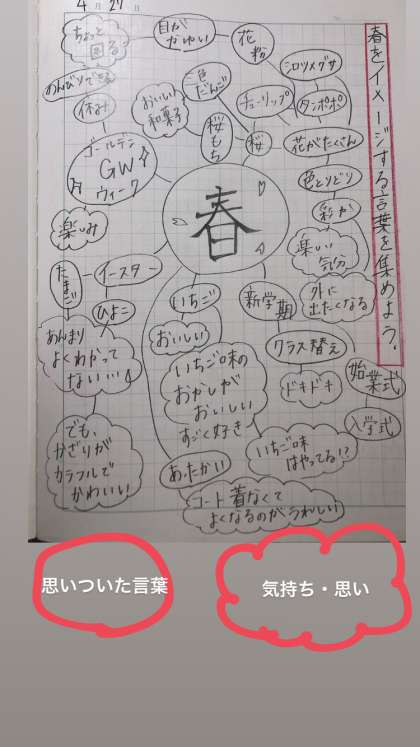 4月27日
春をイメージする言葉を集めよう。
ちょっと
困る
目が
かゆい
花
粉
シロツメグサ
のんびりできる
休み
おいしい
和菓子
三色
だんご
チューリップ
タンポポ
桜
もち
桜
花がたくさん
ゴールデン
GW
ウィーク
色とりどり
彩か
春
楽しみ
楽しい
気分
たまご
イースター
いちご
新学
期
外に
出たくなる
ひよこ
おいしい
クラス替え
あんまり
よくわかって
ない…
いちご味の
おかしが
おいしい
すごく好き
ドキドキ
始業式
入学式
でも、
かざりが
カラフルで
かわいい
いちご味
はやってる!?
あたたかい
コート着なくて
よくなるのがうれしい
思いついた言葉
気持ち・思い